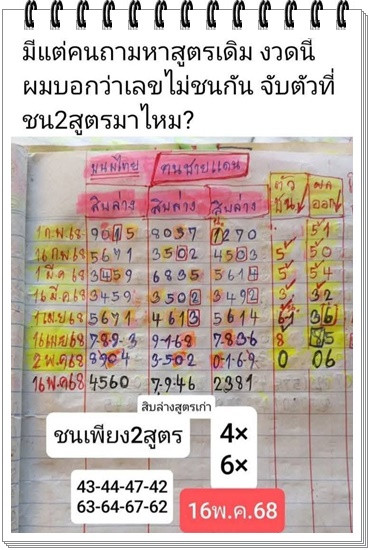 มีแต่คนถามหาสูตรเดิม งวดนี้
ผมบอกว่าเลขไม่ชนกัน จับตัวที่
ชน2สูตรมาไหม?
ขุนพลไทย คนชายแดน
สิบล่าง สิบล่าง สิบล่าง ตัวชน ผลออก
1 ก.พ.68 9015 8037 1270 51
16 ก.พ.68 5671 3502 4503 5 50
1 มี.ค 68 3459 6835 5614 5 54
16 มี.ค 68 3459 3502 3492 3 32
1 เม.ย 68 5671 4613 5614 6 36
16 เม.ย 68 7-8-9-3 9-1-6-8 7-8-3-6 8 85
2 พ.ค 68 8904 3-5-0-2 0-1-6-9 0 06
16 พ.ค 68 4560 7-9-46 2381
สิบล่างสูตรเก่า
ชนเพียง2สูตร
4×
6×
43-44-47-42
63-64-67-62
16พ.ค.68